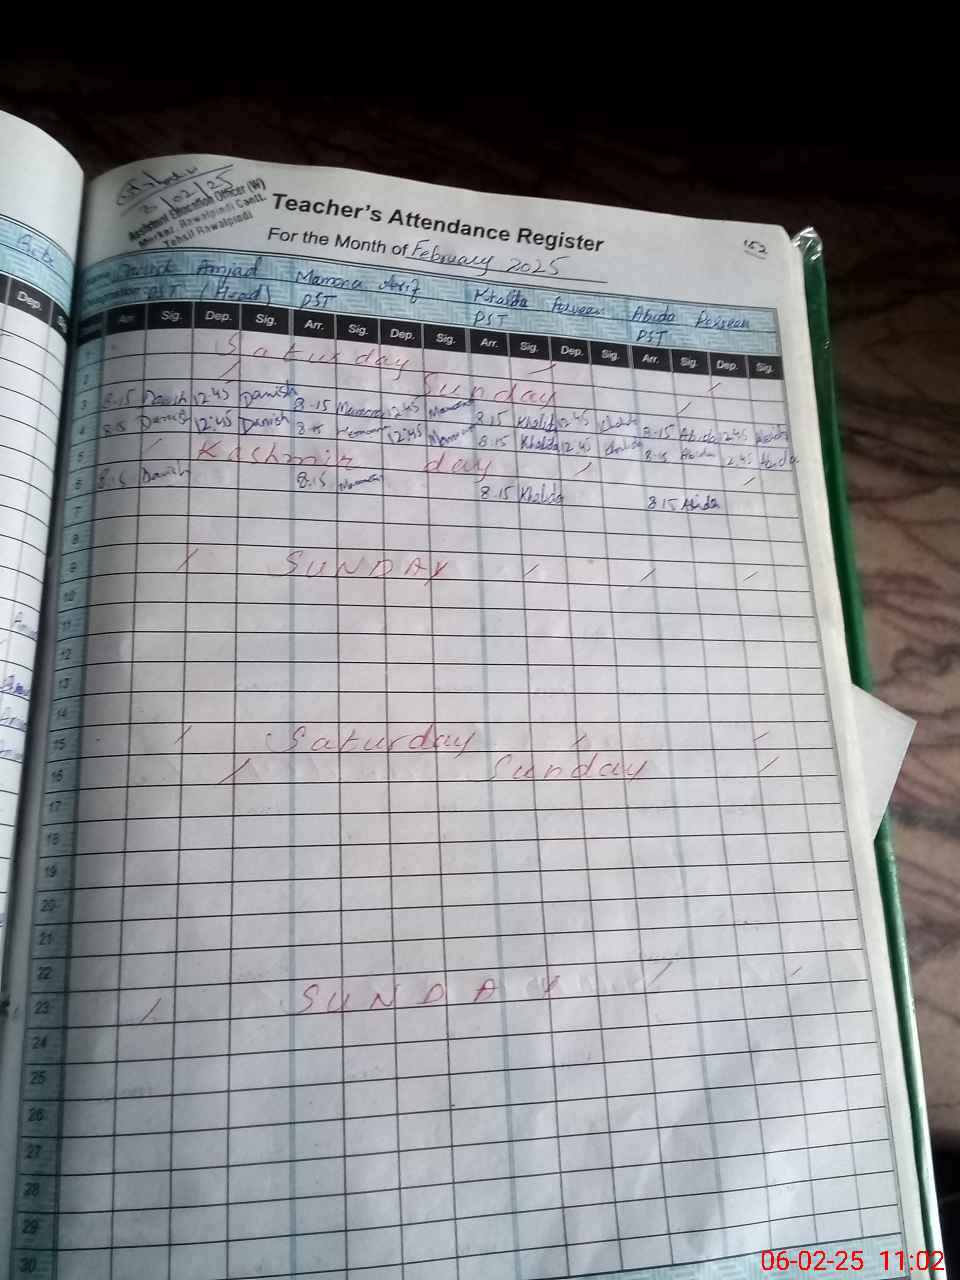 02/25
Assistant Education Officer (W)
Markaz, Rawalpindi Cantt.
Tehsil Rawalpindi
Teacher's Attendance Register
152
For the Month of February 2025
Amjad Mamona Arif Khalida Parveen Abida Parveen
PST (Head) PST PST PST
Dep.
Arr. Sig. Dep. Sig. Arr. Sig. Dep. Sig. Arr. Sig. Dep. Sig. Arr. Sig. Dep. Sig.
1 Saturday
2 Sunday
3 8-15 Danish 12:45 Danish 8-15 Mamona 12:45 Mamona 8-15 Khalida 12:45 Khalida 8-15 Abida 12:45 Abida
4 8:15 Danish 12:45 Danish 8:15 Mamona 12:45 Mamona 8-15 Khalida 12:45 Khalida 8-15 Abida 12:45 Abida
5 Kashmir day
6 8-15 Danish 8:15 Mamona 8-15 Khalida 8 15 Abida
7
8
9 SUNDAY
10
11
12
13
14
15 Saturday
16 Sunday
17
18
19
20
21
22
23 SUNDAY
24
25
26
27
28
29
30
06-02-25 11:02